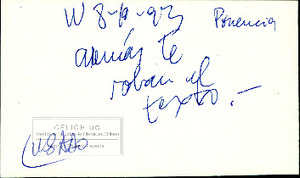 W 8-11-93 Ponencia
además te
roban el
texto.-
CELICH UC
(USADO